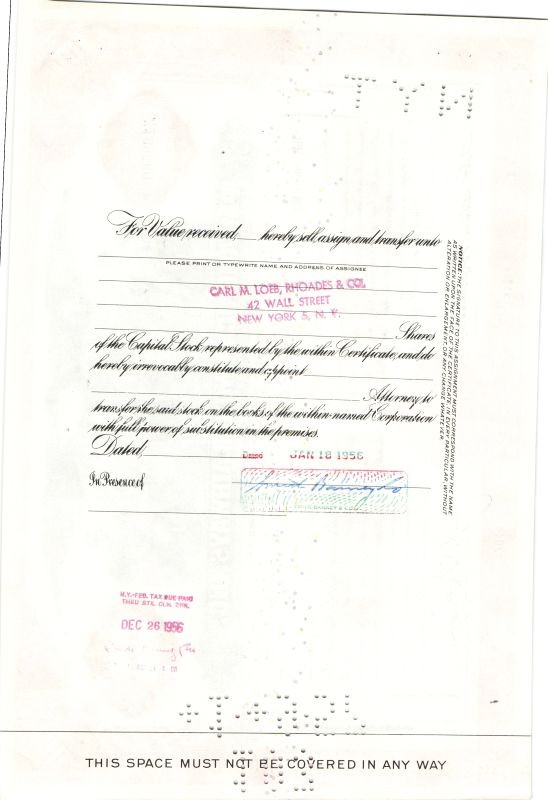 For Value received, hereby sell, assign and transfer unto
PLEASE PRINT OR TYPEWRITE NAME AND ADDRESS OF ASSIGNEE
CARL M. LOEB, RHOADES & CO.
42 WALL STREET
NEW YORK 5, N. Y.
Shares
of the Capital Stock represented by the within Certificate, and do
hereby irrevocably constitute and appoint
Attorney to
transfer the said stock on the books of the within-named Corporation
with full power of substitution in the premises.
Dated, JAN 18 1956
In Presence of
NOTICE: THE SIGNATURE TO THIS ASSIGNMENT MUST CORRESPOND WITH THE NAME
AS WRITTEN UPON THE FACE OF THE CERTIFICATE IN EVERY PARTICULAR, WITHOUT
ALTERATION OR ENLARGEMENT OR ANY CHANGE WHATEVER.
N.Y.-FED. TAX PAID
THRU STK. CLR.
DEC 26 1956
THIS SPACE MUST NOT BE COVERED IN ANY WAY